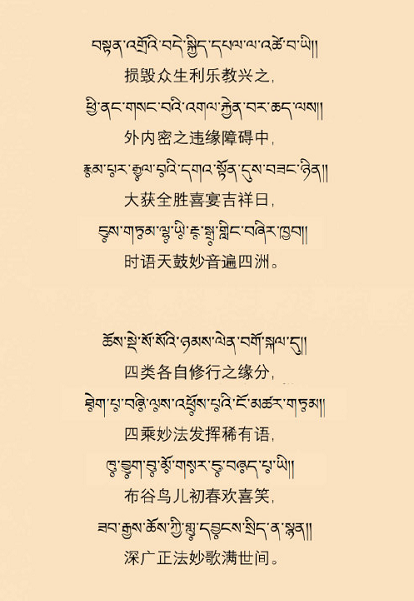 བསྟན་འགྲོའི་བདེ་སྐྱིད་དཔལ་ལ་འཚེ་བ་ཡི།།
损毁众生利乐教兴之，
ཕྱི་ནང་གསང་བའི་འགལ་རྐྱེན་བར་ཆད་ལས།།
外内密之违缘障碍中，
རྣམ་པར་རྒྱལ་བའི་དགའ་སྟོན་དུས་བཟང་ཉིན།།
大获全胜喜宴吉祥日，
དུས་གཏམ་ལྷ་ཡི་རྔ་སྒྲ་གླིང་བཞིར་ཁྱབ།།
时语天鼓妙音遍四洲。
ཆོས་སྡེ་སོ་སོའི་ཉམས་ལེན་བགོ་སྐལ་དུ།།
四类各自修行之缘分，
ཐེག་པ་བཞི་ལས་འཕྲོས་པའི་ངོ་མཚར་གཏམ།།
四乘妙法发挥稀有语，
ཁུ་བྱུག་བུ་མོ་གསར་དུ་བཞད་པ་ཡི།།
布谷鸟儿初春欢喜笑，
ཟབ་རྒྱས་ཆོས་ཀྱི་གླུ་དབྱངས་སྲིད་ན་སྙན།།
深广正法妙歌满世间。